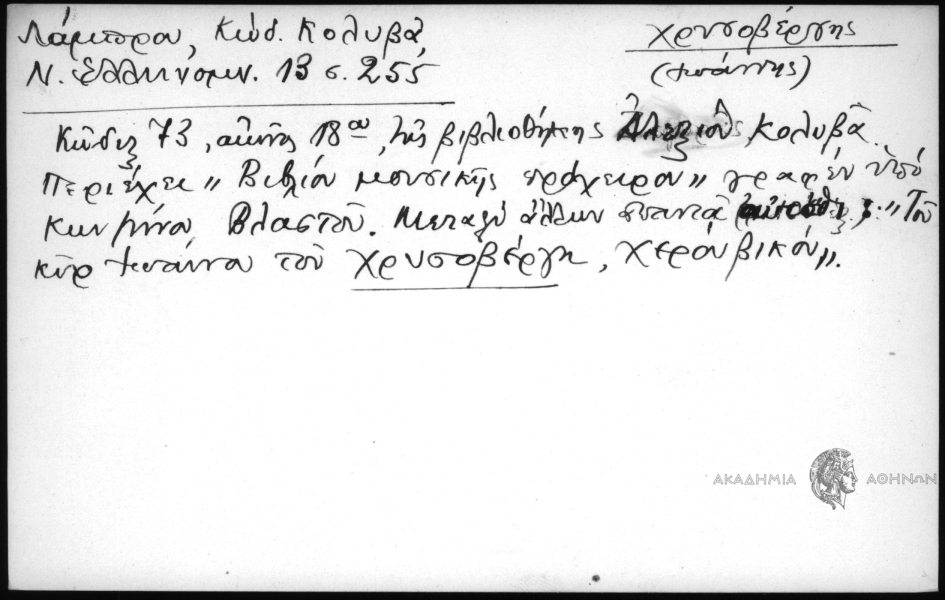 Λάμπρου, Κώδ. Κολυβᾶ,
Ν. Ἑλληνομν. 13 σ. 255
Χρυσοβέργης
(Ἰωάννης)
Κῶδιξ 73, αἰῶνος 18ου, τῆς βιβλιοθήκης Ἀλεξίου Κολυβᾶ.
Περιέχει „Βιβλίον μουσικῆς πρόχειρον„ γραφὲν ὑπὸ
Κων/νου Βλαστοῦ. Μεταξὺ ἄλλων : „Τοῦ
κὺρ Ἰωάννου τοῦ Χρυσοβέργη, χερουβικόν„.
ΑΚΑΔΗΜΙΑ ΑΘΗΝΩΝ